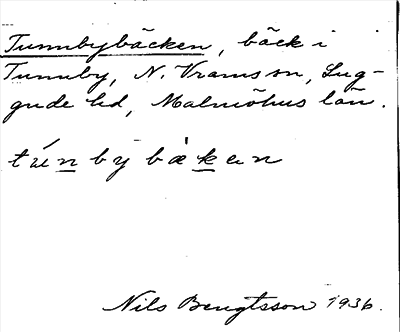 Tunnbybäcken, bäck i
Tunnby, N. Vrams sn, Lug-
gude hd, Malmöhus län.
túnbybäkan
Nils Bengtsson 1936.